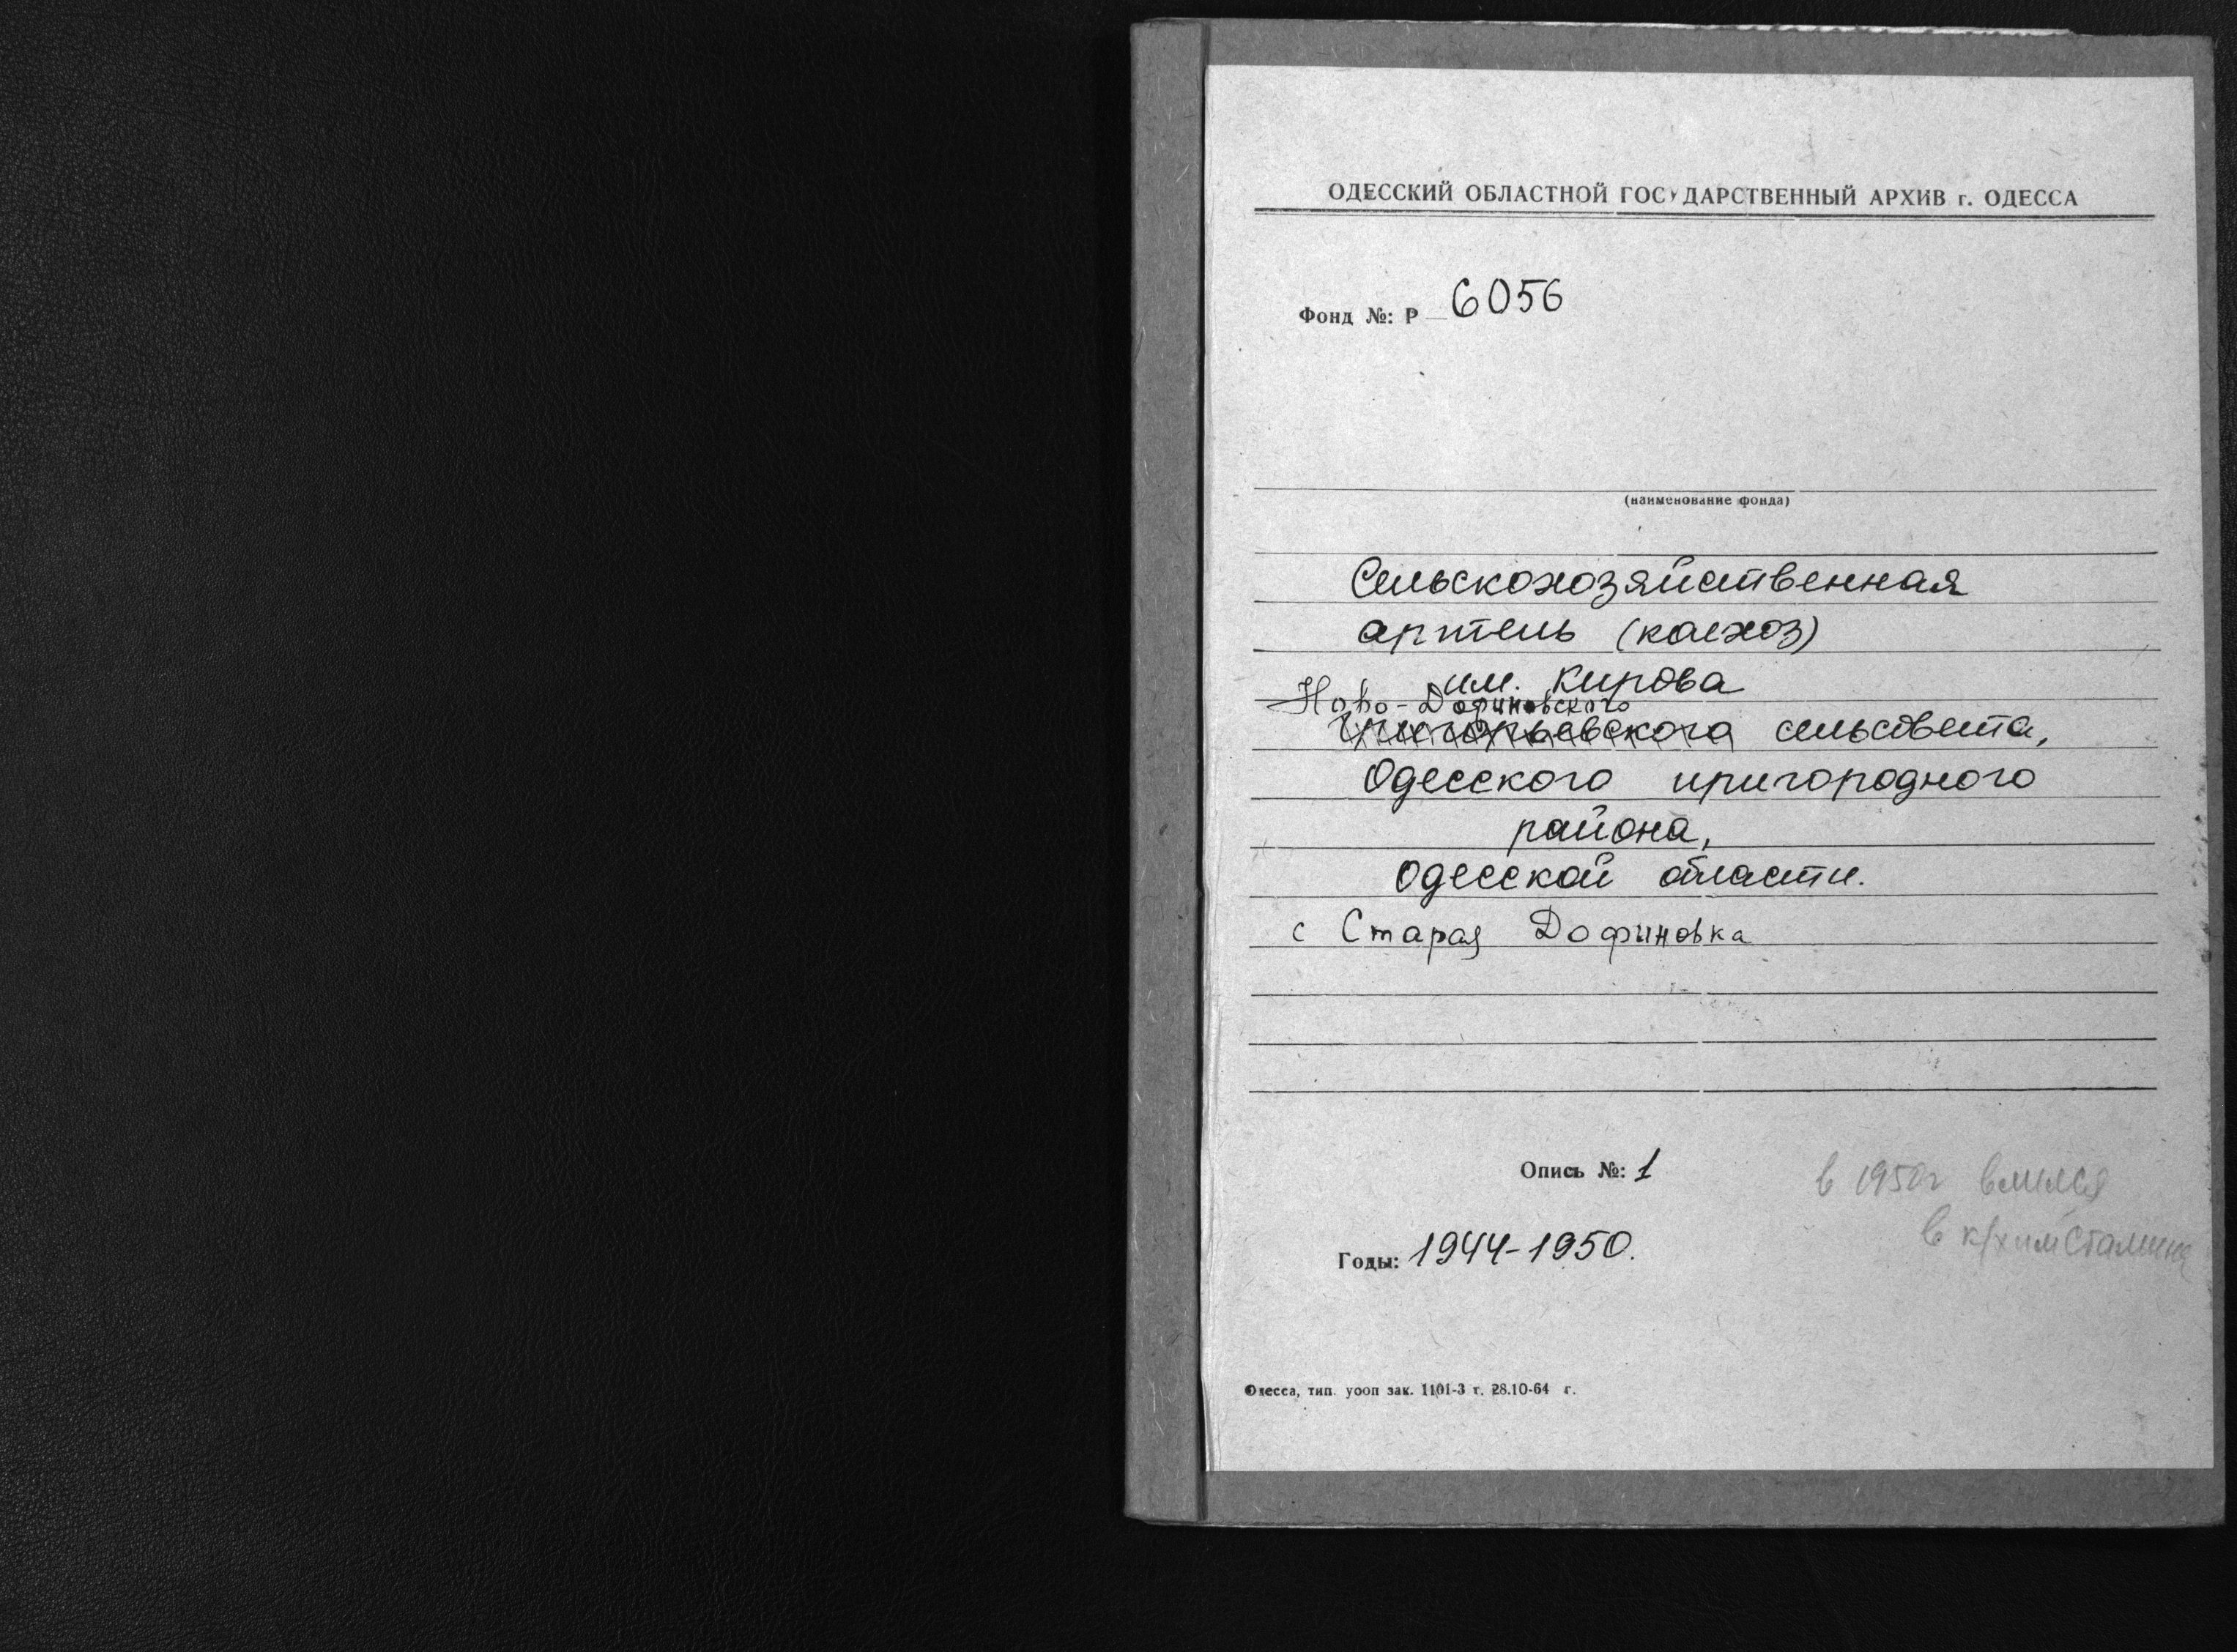 ОДЕССКИЙ ОБЛАСТНОЙ ГОСУДАРСТВЕННЫЙ АРХИВ г. ОДЕССА
Фонд №: Р — 6056
(наименование фонда)
Сельскохозяйственная
артель (колхоз)
им. Кирова
Ново-Дофиновского
Григорьевского сельсовета,
Одесского пригородного
района,
Одесской области.
с Старая Дофиновка
Опись №: 1
в 1950г влился
в к/х им Сталина
Годы: 1944-1950.
Одесса, тип. уооп зак. 1101-3 т. 28.10-64 г.